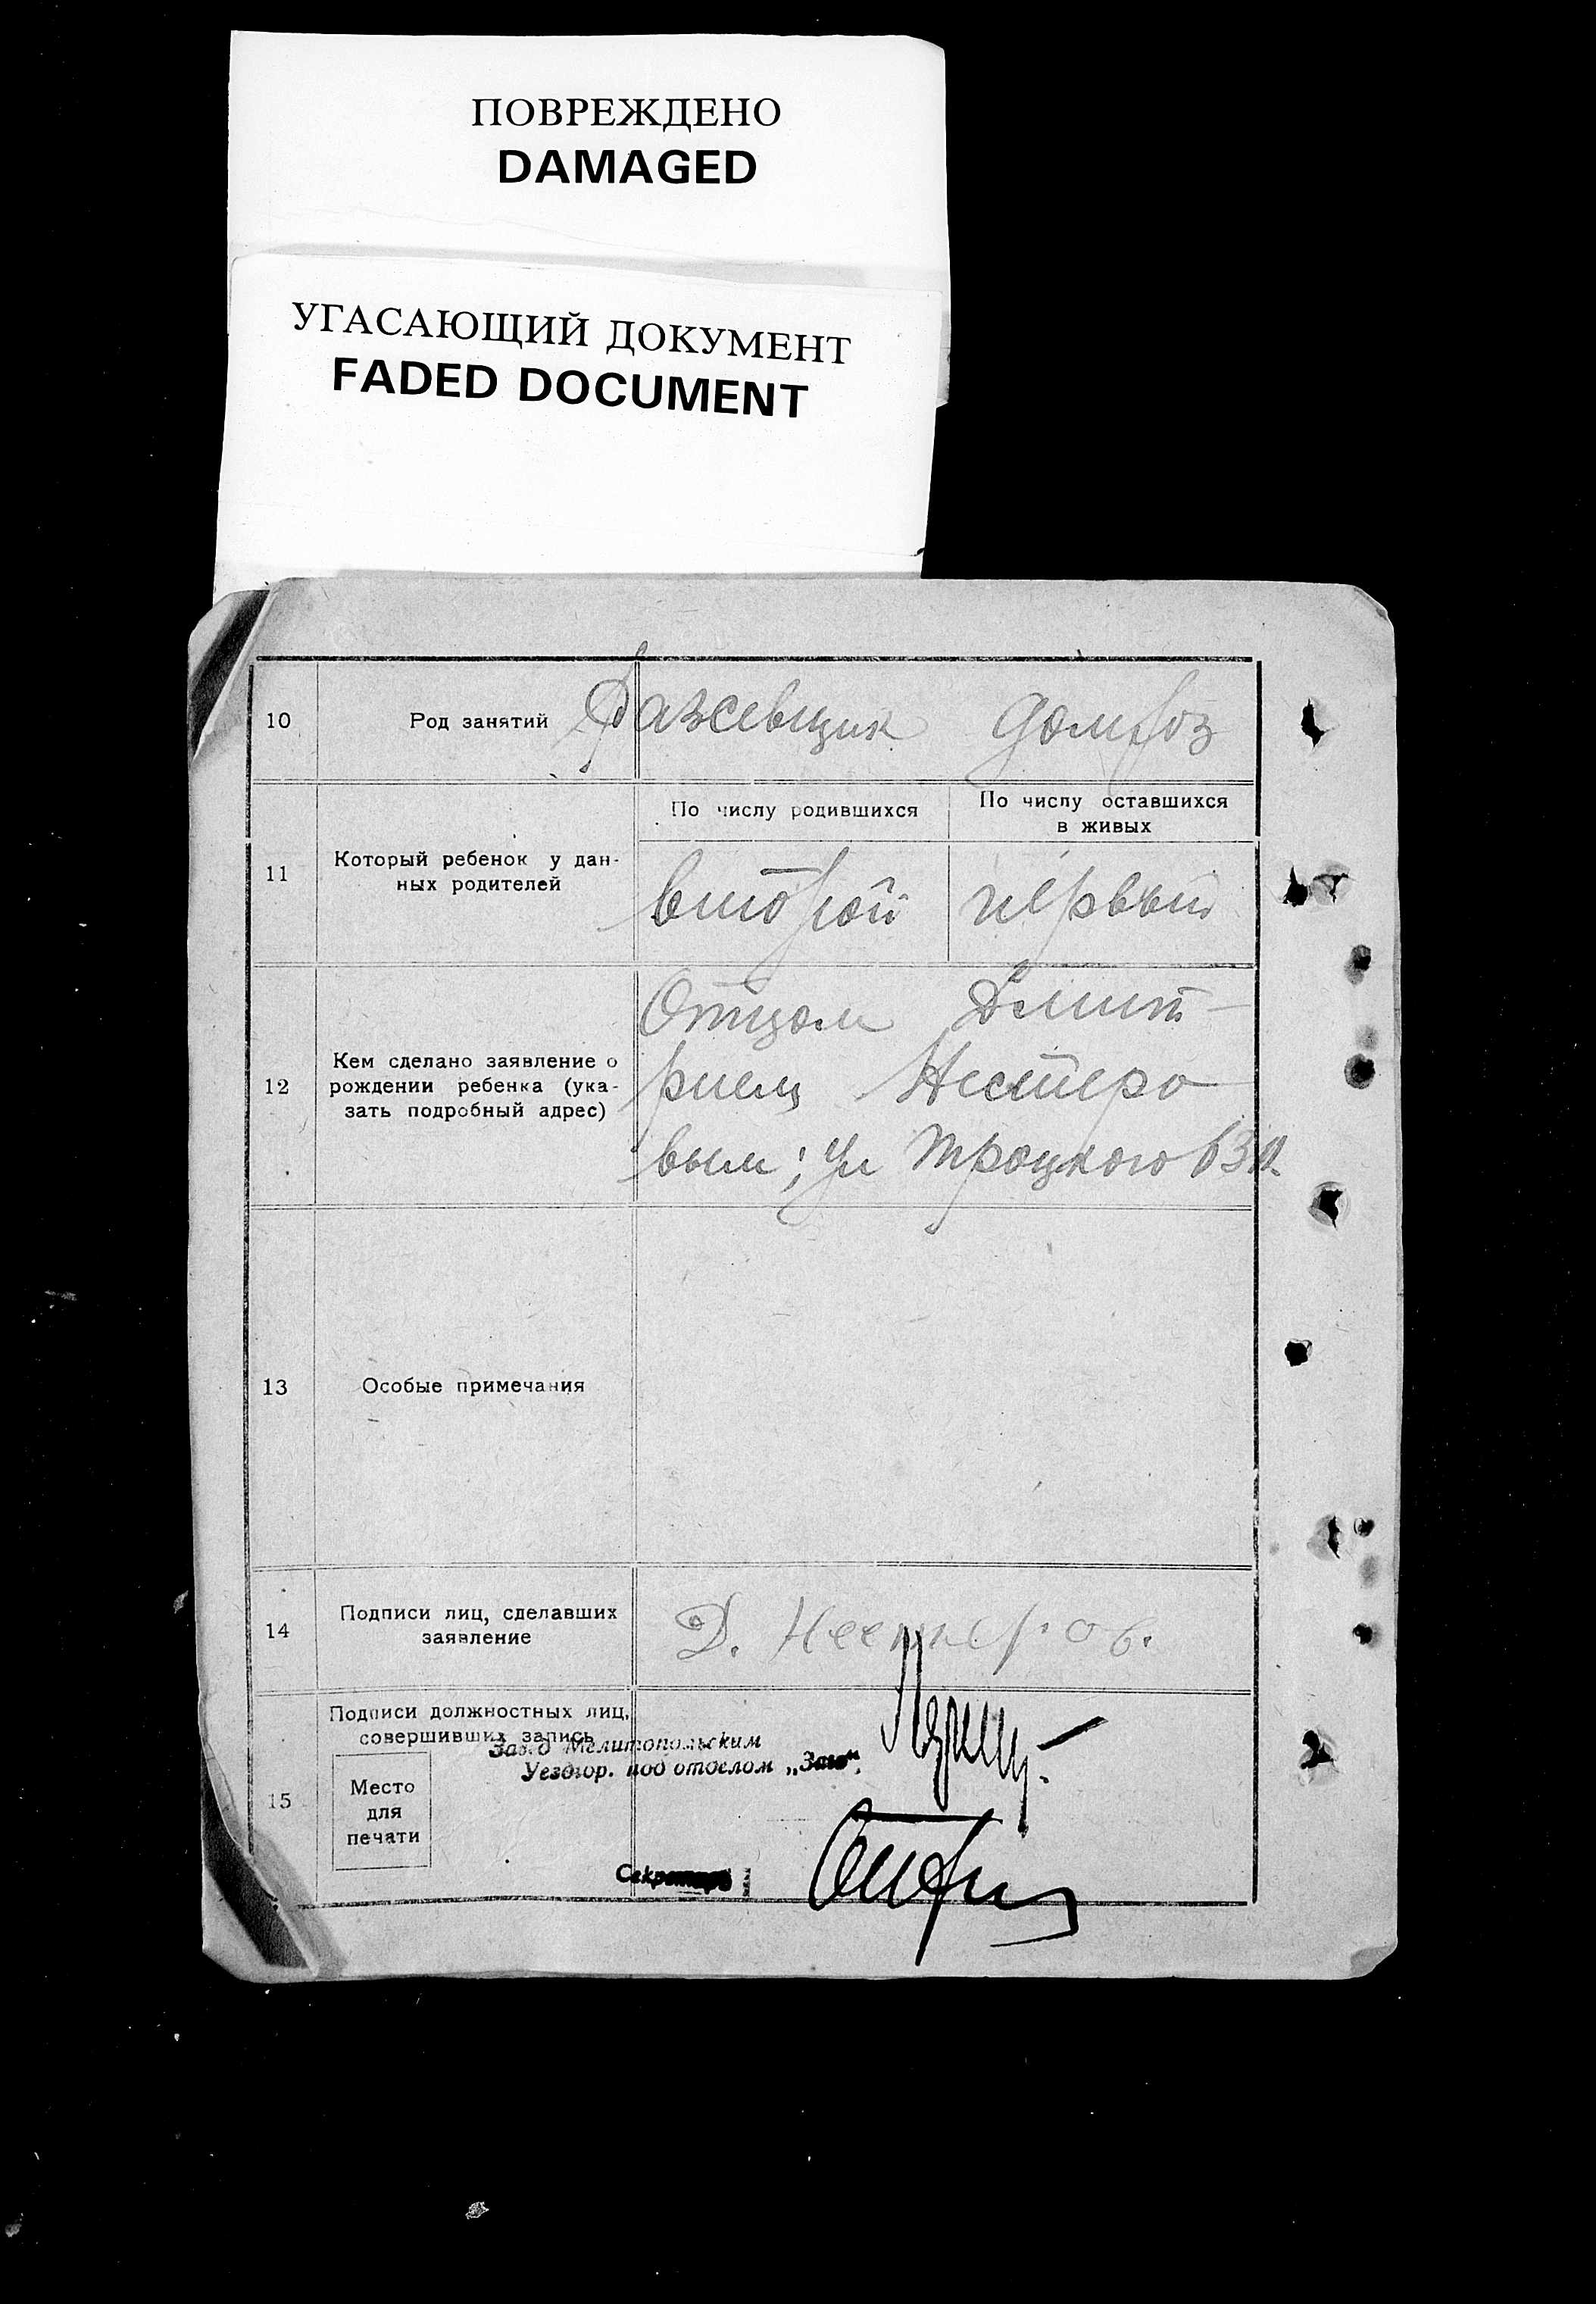 ПОВРЕЖДЕНО
DAMAGED
УГАСАЮЩИЙ ДОКУМЕНТ
FADED DOCUMENT
10 Род занятий домхоз
По числу родившихся По числу оставшихся
в живых
11 Который ребенок у дан-
ных родителей
второй первый
12 Кем сделано заявление о
рождении ребенка (ука-
зать подробный адрес)
Отцом Дмит-
рием Нестеро
вым; ул Троцкого
13 Особые примечания
14 Подписи лиц, сделавших
заявление
Д. Нестеров.
15 Подписи должностных лиц,
совершивших запись
Зав.д Мелитопольским
Уездгор. под отделом „Загс".
Место
для
печати
Секретарь